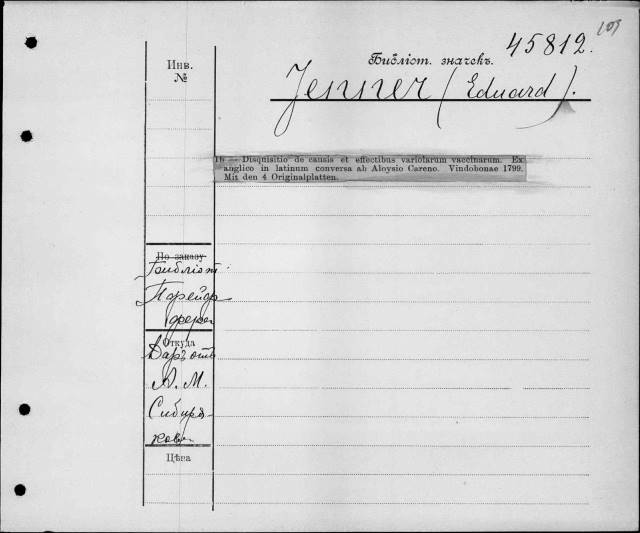 109
45812.
Библіот. значекъ.
Инв.
№
Jenner (Eduard).
1b — Disquisitio de causis et effectibus variolarum vaccinarum. Ex
anglico in latinum conversa ab Aloysio Careno. Vindobonae 1799.
Mit den 4 Originalplatten.
По заказу
Библіот.
Пфейф
фера
Откуда
Даръ отъ
А. М.
Сибиря-
кова
Цѣна